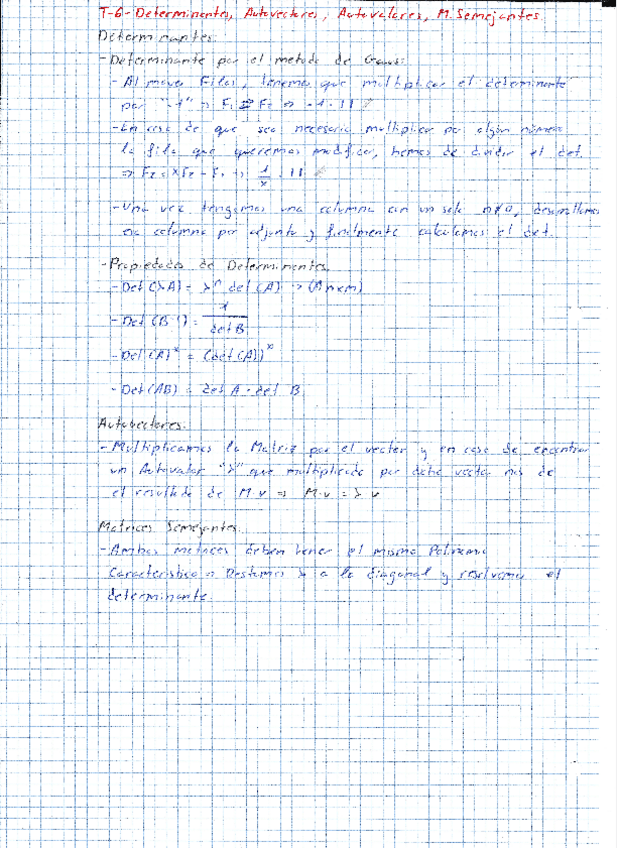 T-6-Determinantes, Autovectores, Autovalores, M. Semejantes
Determinantes:
-Determinante por el metodo de Gauss:
-Al mover Filas, tenemos que multiplicar el determinante
por "-1" => F1 ⇄ F2 => -1·| |
-En caso de que sea necesario multiplicar por algún número
la fila que queremos modificar, hemos de dividir el det.
=> F2 = xF2 - F1 => 1/x · | |
-Una vez tengamos una columna con un solo n≠0, desarrollamos
esa columna por adjunto y finalmente calculamos el det.
-Propiedades de Determinantes
-Det(λA) = λ^n det(A) -> (A nxm)
-Det(B^-1) = 1/det B
-Det(A)^x = (det(A))^x
-Det(AB) = det A · det B
Autovectores:
-Multiplicamos la Matriz por el vector y en caso de encontrar
un Autovalor "λ" que multiplicado por dicho vector nos de
el resultado de M·v => M·v = λ v
Matrices Semejantes:
-Ambas matrices deben tener el mismo Polinomio
Característico Restamos λ a la diagonal y resolvemos el
determinante.